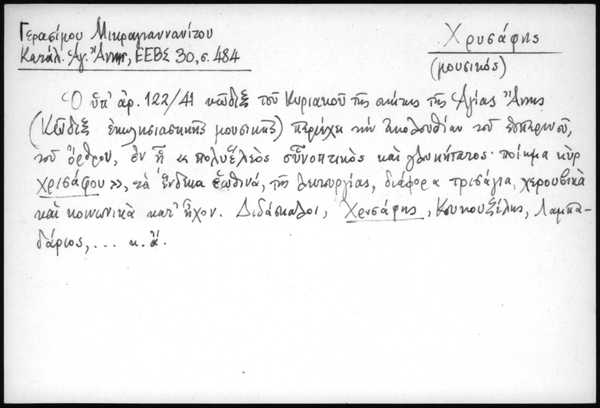 Γερασίμου Μικραγιαννανίτου
Κατάλ. Ἁγ. Ἄννης, ΕΕΒΣ 30, σ. 484
Χρυσάφης
(μουσικός)
Ὁ ὑπ' ἀρ. 122/41 κῶδιξ τοῦ Κυριακοῦ τῆς σκήτης τῆς Ἁγίας Ἄννης
(Κῶδιξ ἐκκλησιαστικῆς μουσικῆς) περιέχει τὴν ἀκολουθίαν τοῦ ἑσπερινοῦ,
τοῦ ὄρθρου, ἐν ᾗ « πολυέλεος συνοπτικὸς καὶ γλυκύτατος· ποίημα κὺρ
Χρισάφου », τὰ ἕνδεκα ἑωθινά, τῆς λειτουργίας, διάφορα τρισάγια, χερουβικὰ
καὶ κοινωνικὰ κατ' ἦχον. Διδάσκαλοι, Χρυσάφης, Κουκουζέλης, Λαμπα-
δάριος, ... κ. ἄ.